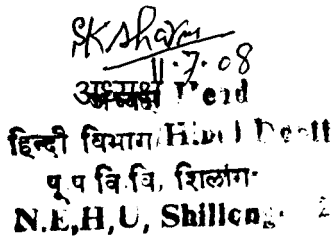 SK Sharma
11.7.08
अध्यक्ष Head
हिन्दी विभाग/Hindi Deptt
पू प वि वि, शिलांग.
N.E,H,U, Shillong.